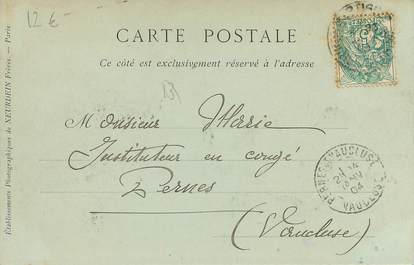 12 €-
CARTE POSTALE
Ce côté est exclusivement réservé à l'adresse
Monsieur Marie
Instituteur en congé
Pernes
(Vaucluse)
PERNES VAUCLUSE
04
VAUCLUSE
Établissements Photographiques de NEURDEIN Frères. — Paris